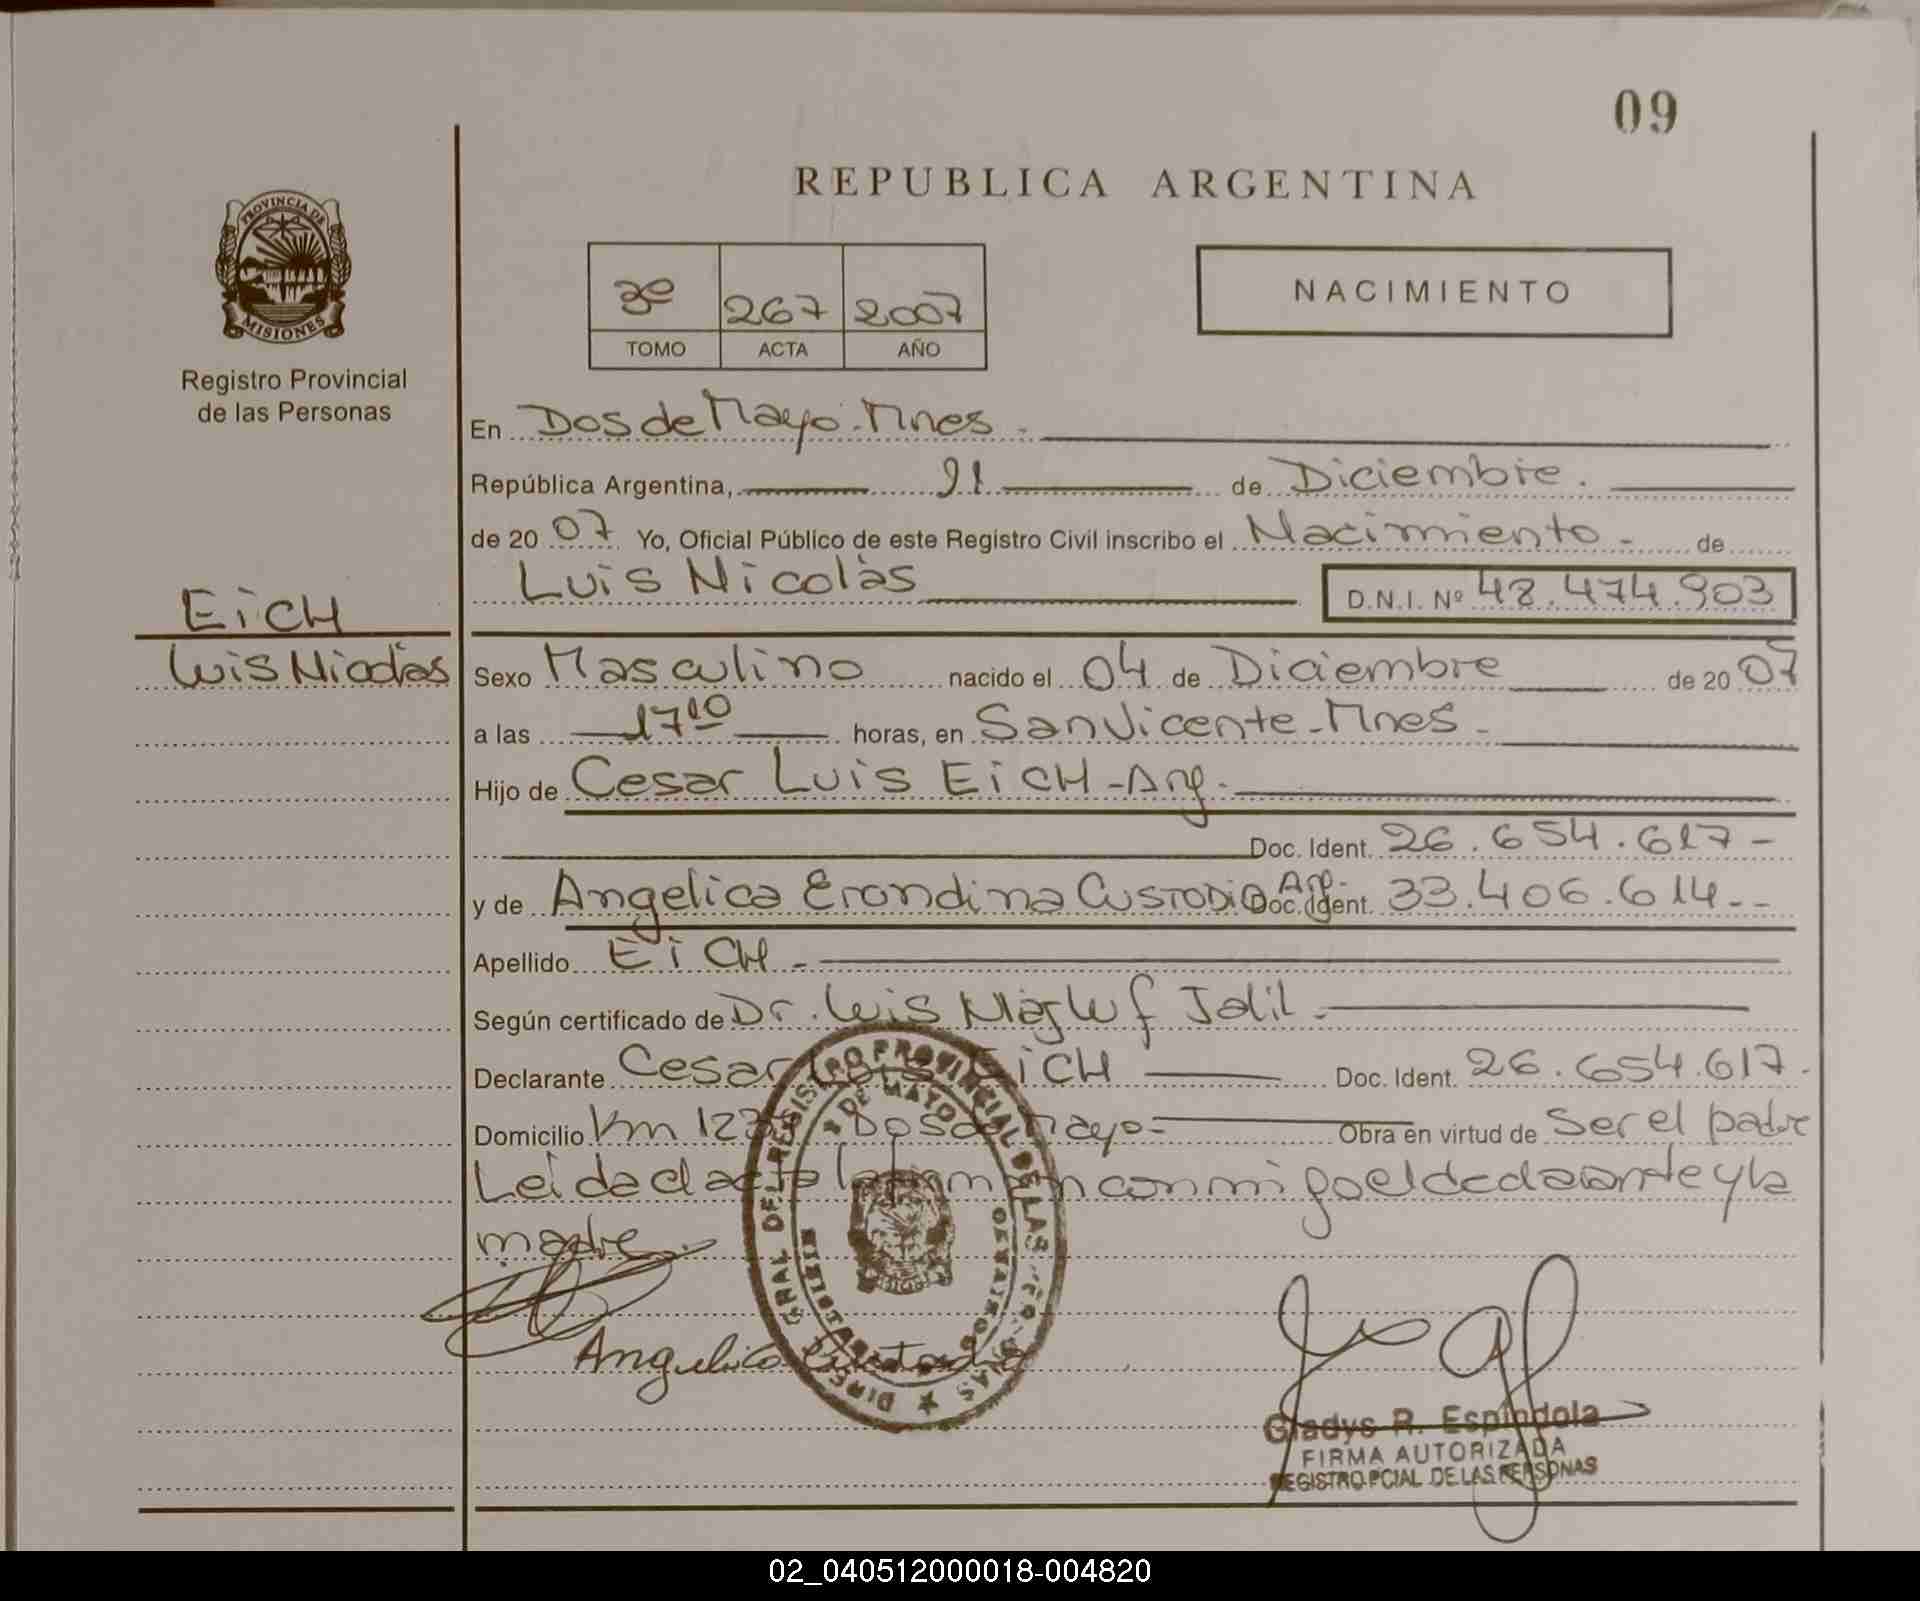 09
REPUBLICA ARGENTINA
PROVINCIA DE
MISIONES
Registro Provincial
de las Personas
3º 267 2007
TOMO ACTA AÑO
NACIMIENTO
En Dos de Mayo - Mnes -
República Argentina, 21 de Diciembre.
de 2007 Yo, Oficial Público de este Registro Civil inscribo el Nacimiento - de
Luis Nicolás D.N.I. Nº 48.474.903
EiCH
Luis Nicolás
Sexo Masculino nacido el 04 de Diciembre de 2007
a las 17 10 horas, en San Vicente - Mnes -
Hijo de Cesar Luis EiCH - Arg.
Doc. Ident. 26.654.617 -
y de Angelica Erondina CUSTODIO Arg. Doc. Ident. 33.406.614 --
Apellido EiCH -
Según certificado de Dr. Luis Majluf Jalil -
Declarante Cesar Luis EiCH Doc. Ident. 26.654.617 -
Domicilio Km 123 Dos de mayo - Obra en virtud de Ser el padre
Leida el acta la firman conmigo el declarante y la
madre.
Angelica Custodio
REGISTRO PROVINCIAL DE LAS
DE MAYO
Gladys R. Espindola
FIRMA AUTORIZADA
REGISTRO PCIAL DE LAS PERSONAS
02_040512000018-004820